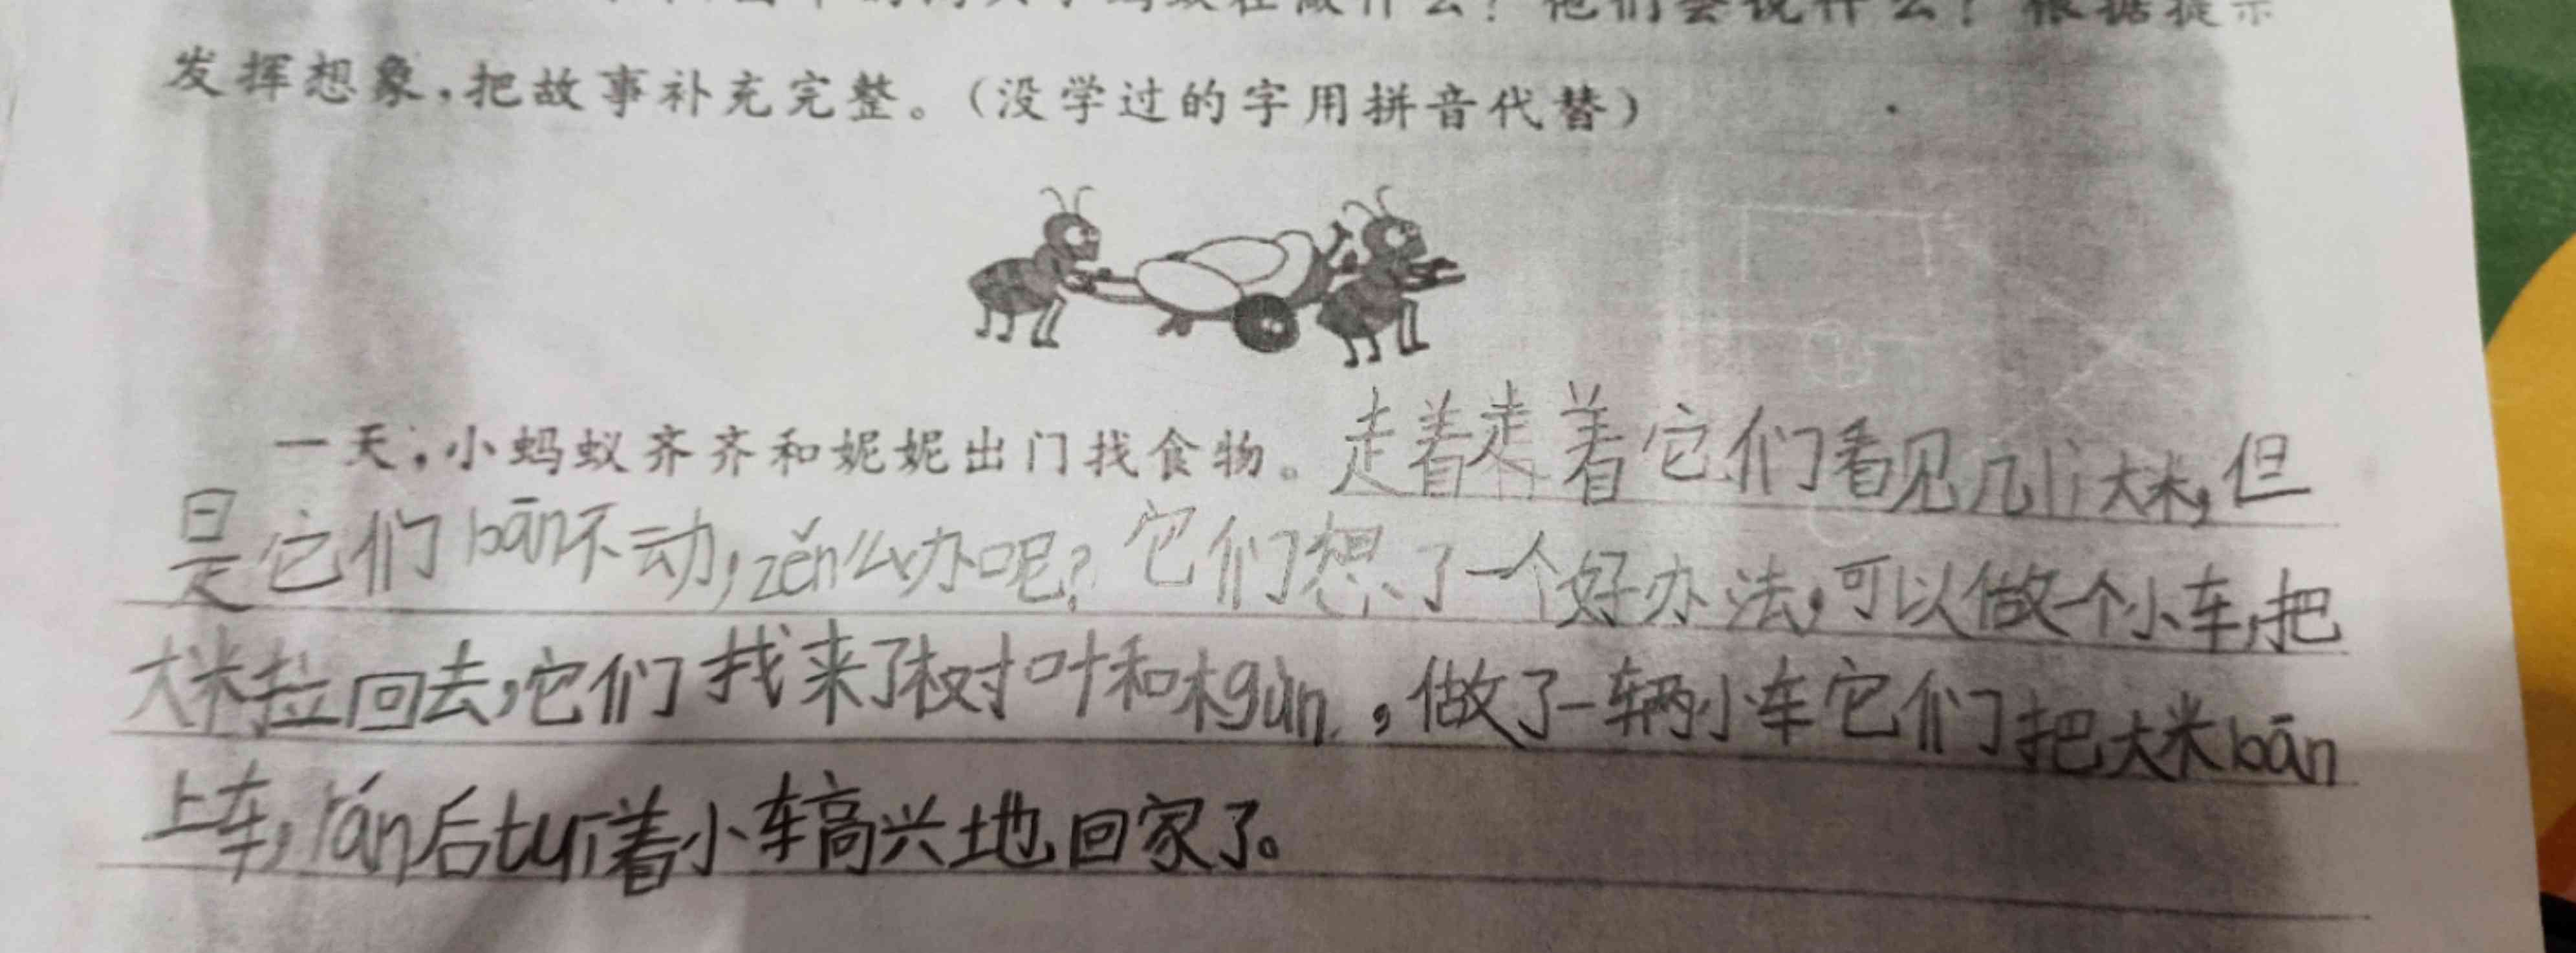 在做什么？他们会说什么？根据提示
发挥想象，把故事补充完整。（没学过的字用拼音代替）
一天，小蚂蚁齐齐和妮妮出门找食物。走着走着它们看见几lì大米，但
是它们bān不动，zěn么办呢？它们想了一个好办法，可以做一个小车，把
大米拉回去，它们找来了树叶和木gùn，做了一辆小车它们把大米bān
上车，rán后tuī着小车高兴地回家了。